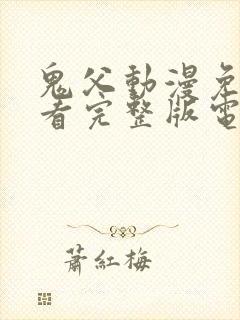 鬼父動漫免
看完整版電
蕭紅梅